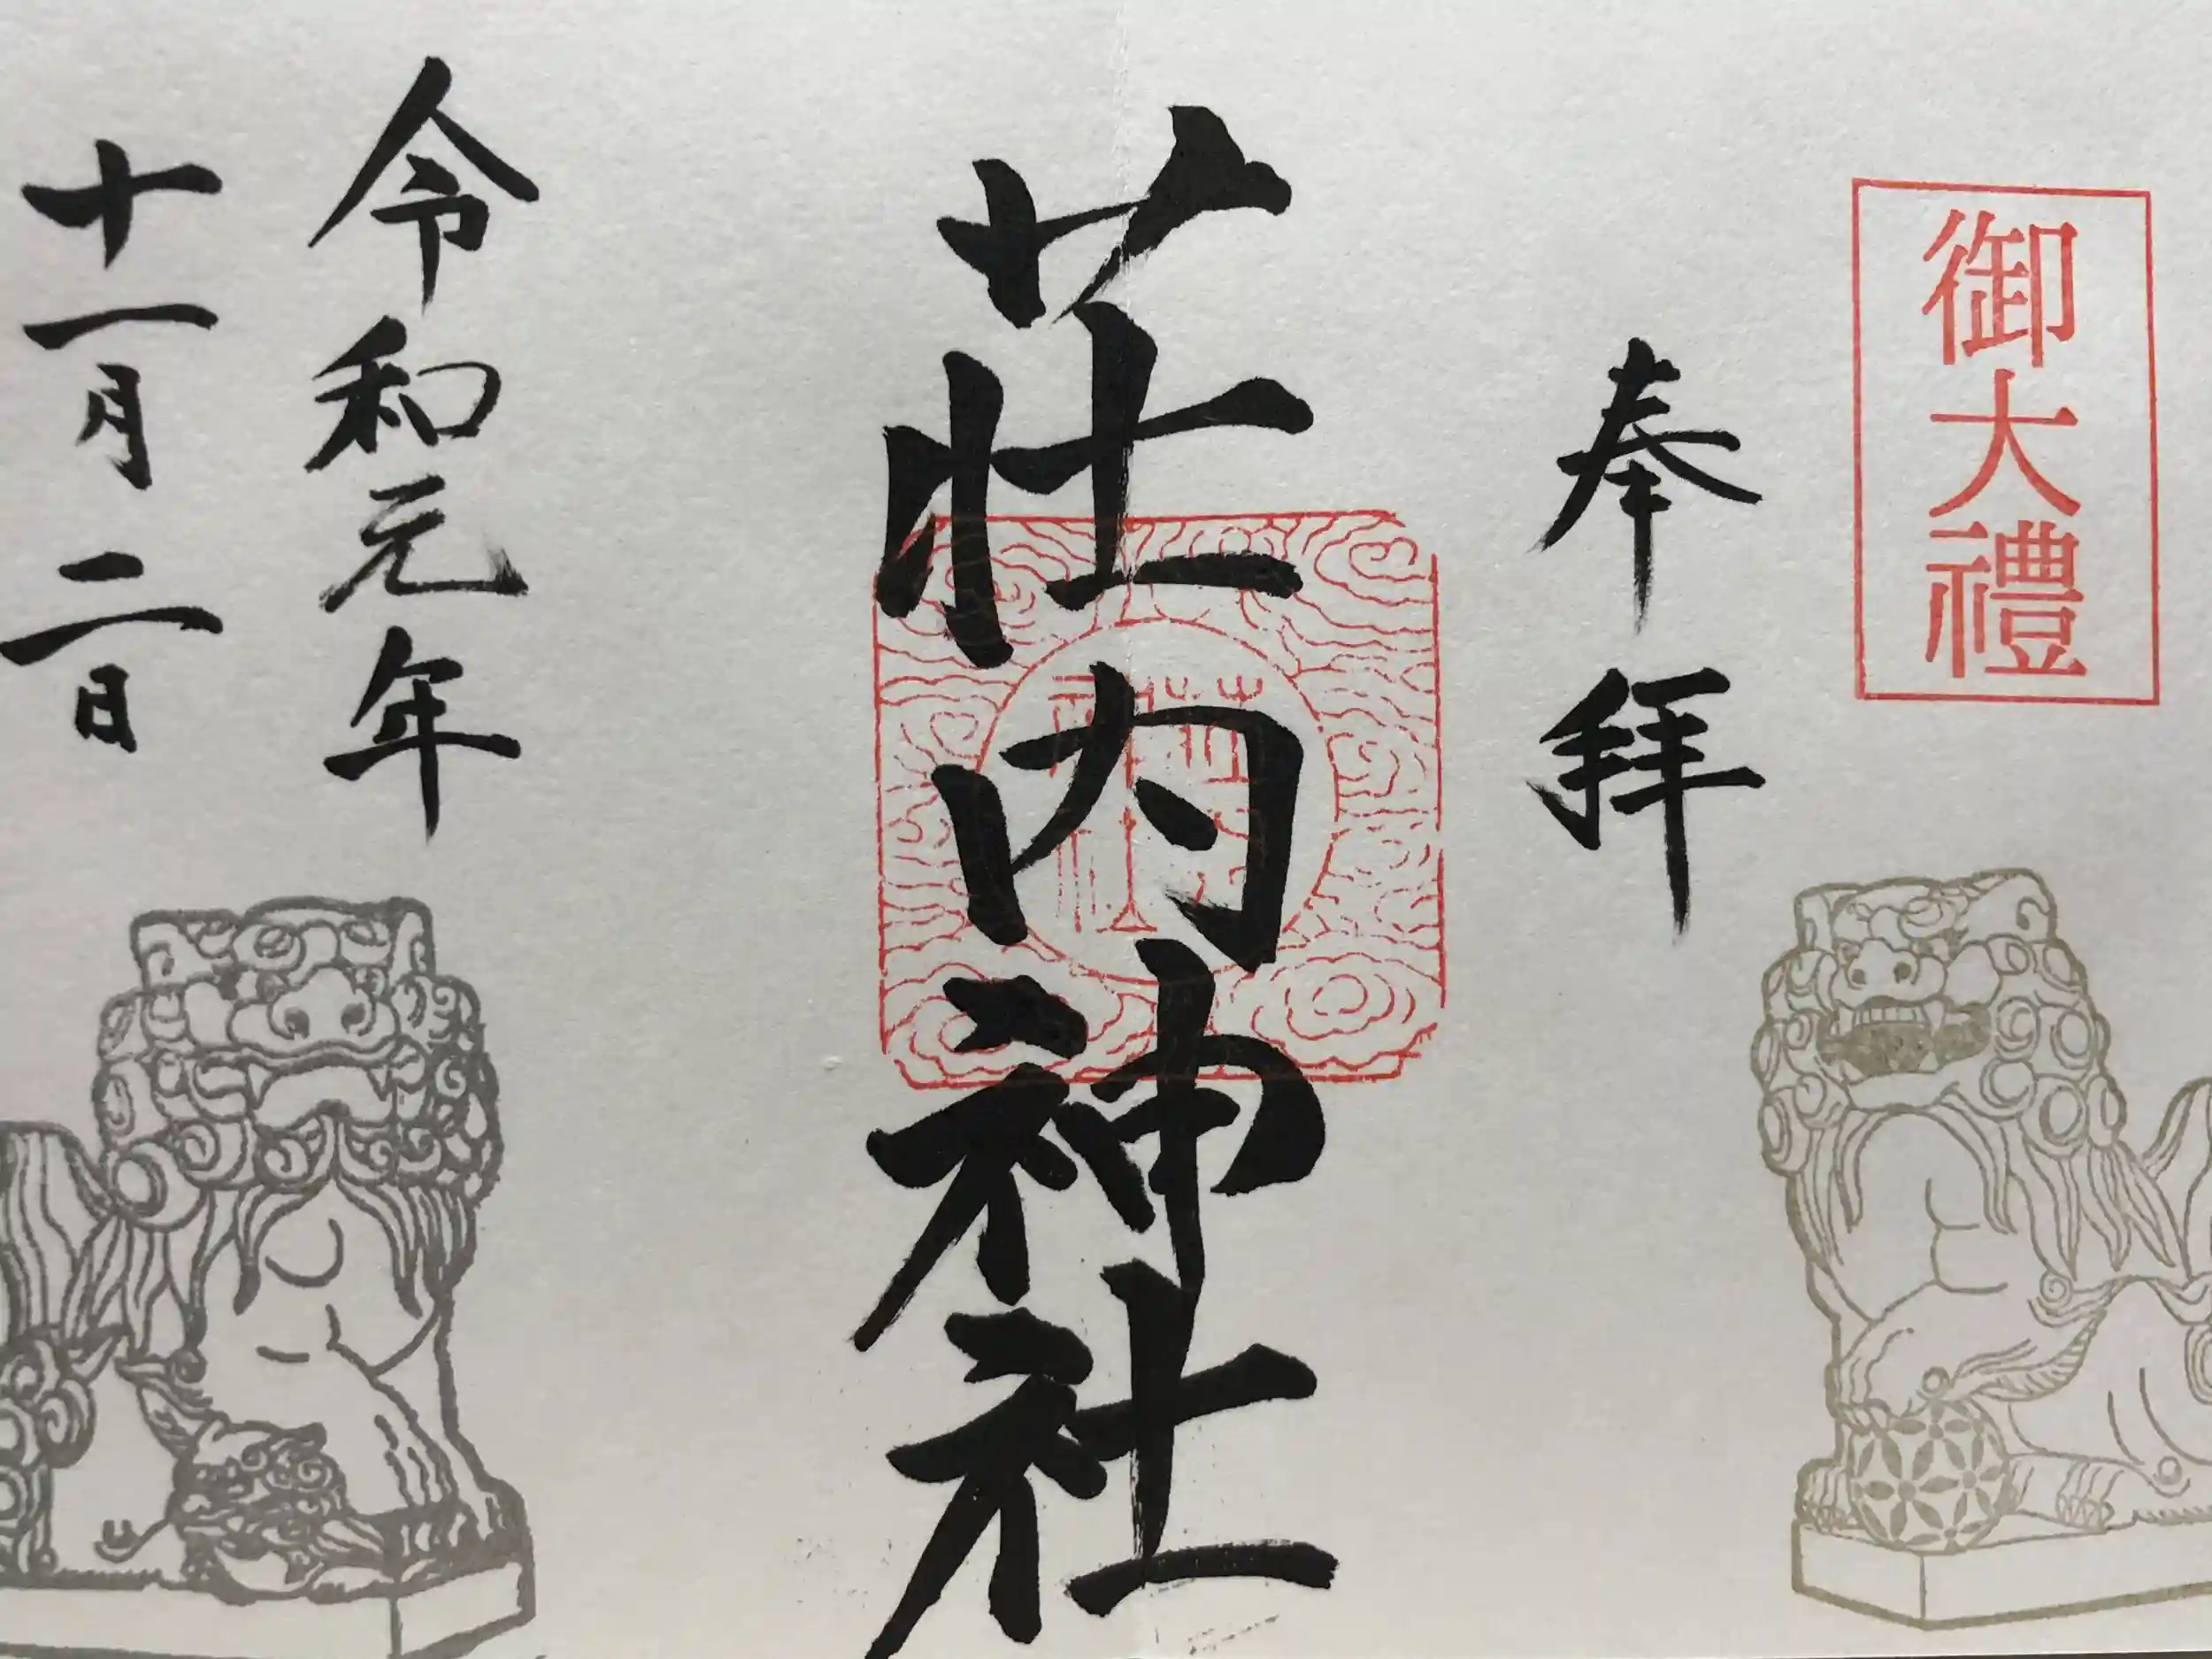 御大禮
奉拜
荘内神社
令和元年
十一月二日